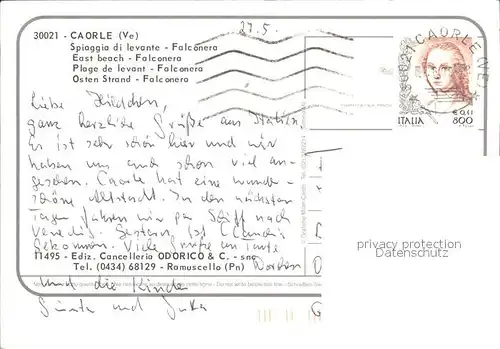 27.5.
30021 - CAORLE (Ve)
Spiaggia di levante - Falconera
East beach - Falconera
Plage de levant - Falconera
Osten Strand - Falconera
30021 CAORLE (VE)
€ 0,41
ITALIA 800
Liebe
ganz herzliche Grüße aus Italien.
Es ist sehr schön hier und wir
haben uns auch schon viel an-
gesehen. Caorle hat eine wunder-
schöne Altstadt. In den nächsten
Tagen fahren wir per Schiff nach
Venedig. Gestern ist Claudia
gekommen. Viele Grüße an Tante
11495 - Ediz. Cancelleria ODORICO & C. - snc
Tel. (0434) 68129 - Ramuscello (Pn)
und die Kinder
und
privacy protection
Datenschutz